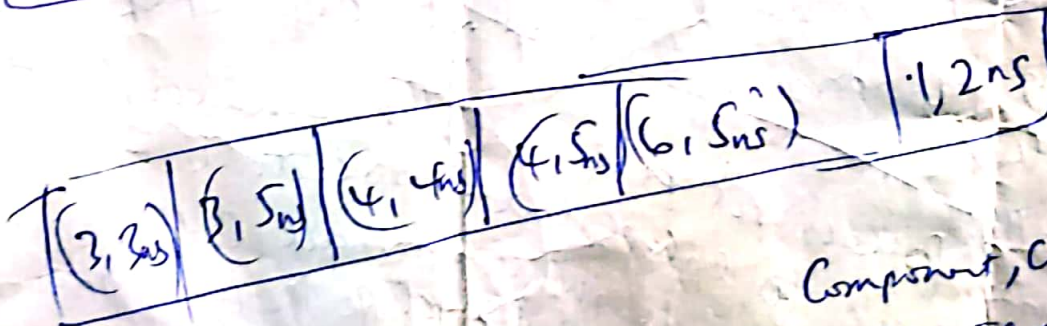 (3, 3ns) (3, 5ns) (4, 4ns) (4, 5ns (6, 5ns) 1, 2ns
Component, C